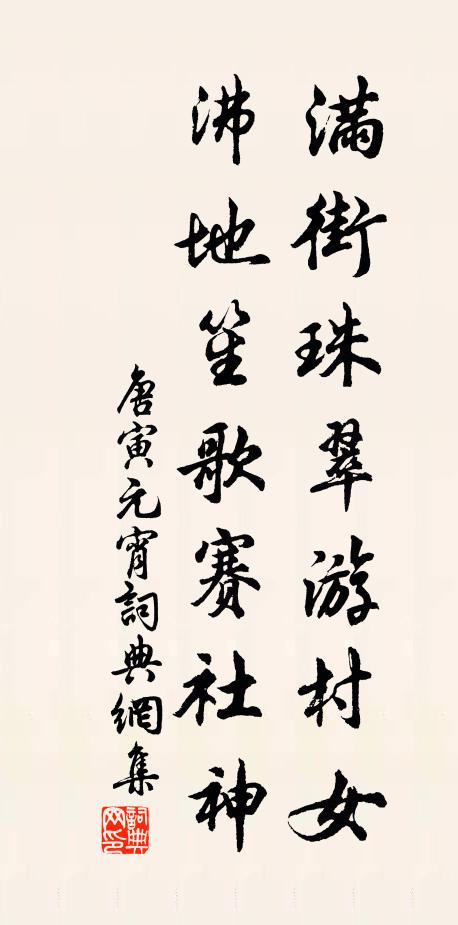 滿街珠翠游村女
沸地笙歌賽社神
唐寅元宵詞典網集
詞典網印